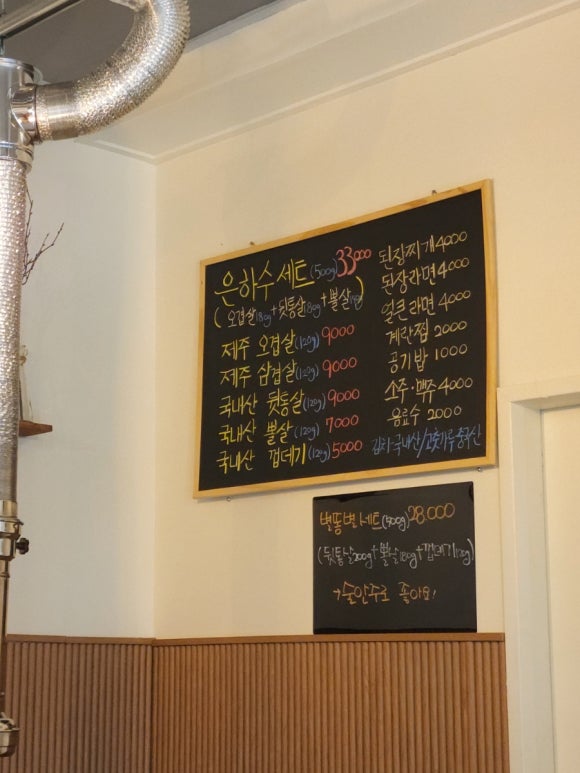 은하수세트(500g)33000
(오겹살180g+뒷통살180g+뽈살140g)
제주 오겹살(120g) 9000
제주 삼겹살(120g) 9000
국내산 뒷통살(120g) 9000
국내산 뽈살(120g) 7000
국내산 껍데기(120g) 5000
된장찌개 4000
된장라면 4000
얼큰라면 4000
계란찜 2000
공기밥 1000
소주·맥주 4000
음료수 2000
김치-국내산/고춧가루 중국산
별똥별세트(500g) 28.000
(뒷통살200g+뽈살180g+껍데기120g)
→술안주로 좋아요!